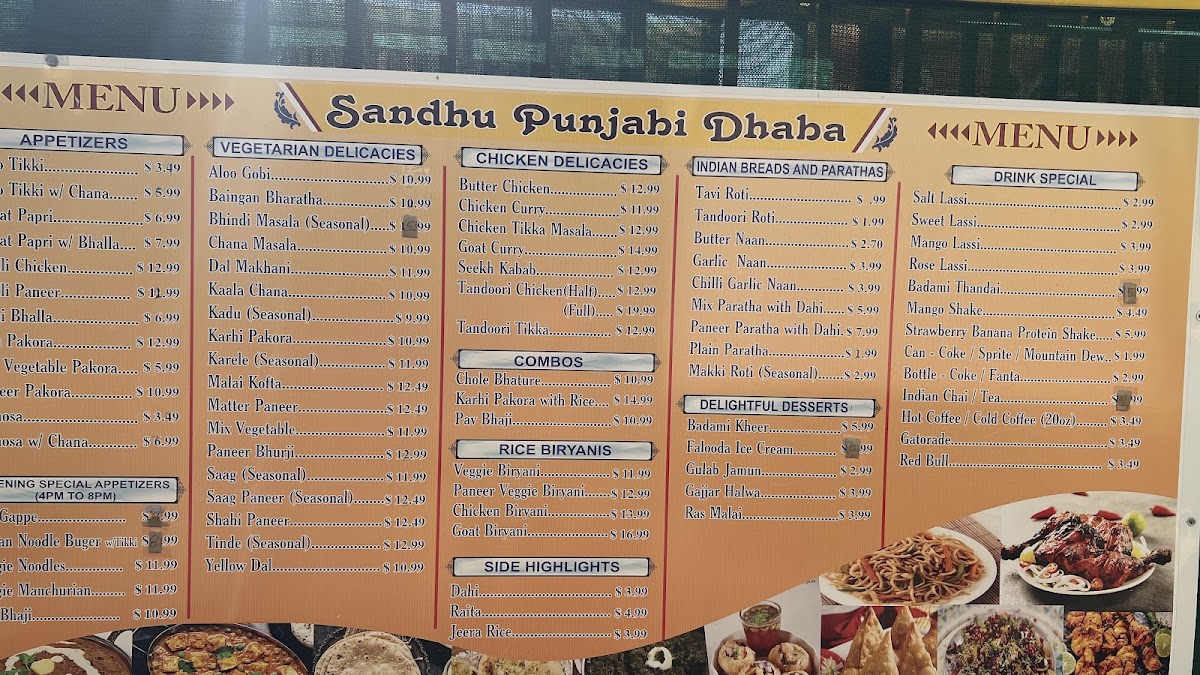 MENU
Sandhu Punjabi Dhaba
MENU
APPETIZERS
Tikki..... $ 3.49
Tikki w/ Chana..... $ 5.99
Papri..... $ 6.99
Papri w/ Bhalla..... $ 7.99
Chicken..... $ 12.99
Paneer..... $ 11.99
Bhalla..... $ 6.99
Pakora..... $ 12.99
Vegetable Pakora..... $ 5.99
Pakora..... $ 10.99
$ 3.49
w/ Chana..... $ 6.99
SPECIAL APPETIZERS
(4PM TO 8PM)
Gappe
Noodle Buger w/Tikki
Noodles..... $ 11.99
Manchurian..... $ 11.99
Bhaji..... $ 10.99
VEGETARIAN DELICACIES
Aloo Gobi..... $ 10.99
Baingan Bharatha..... $ 10.99
Bhindi Masala (Seasonal)..... $
Chana Masala..... $ 10.99
Dal Makhani..... $ 11.99
Kaala Chana..... $ 10.99
Kadu (Seasonal)..... $ 9.99
Karhi Pakora..... $ 10.99
Karele (Seasonal)..... $ 11.99
Malai Kofta..... $ 12.49
Matter Paneer..... $ 12.49
Mix Vegetable..... $ 11.99
Paneer Bhurji..... $ 12.99
Saag (Seasonal)..... $ 11.99
Saag Paneer (Seasonal)..... $ 12.49
Shahi Paneer..... $ 12.49
Tinde (Seasonal)..... $ 12.99
Yellow Dal..... $ 10.99
CHICKEN DELICACIES
Butter Chicken..... $ 12.99
Chicken Curry..... $ 11.99
Chicken Tikka Masala..... $ 12.99
Goat Curry..... $ 14.99
Seekh Kabab..... $ 12.99
Tandoori Chicken(Half)..... $ 12.99
(Full)..... $ 19.99
Tandoori Tikka..... $ 12.99
COMBOS
Chole Bhature..... $ 10.99
Karhi Pakora with Rice..... $ 14.99
Pav Bhaji..... $ 10.99
RICE BIRYANIS
Veggie Biryani..... $ 11.99
Paneer Veggie Biryani..... $ 12.99
Chicken Biryani..... $ 13.99
Goat Biryani..... $ 16.99
SIDE HIGHLIGHTS
Dahi..... $ 3.99
Raita..... $ 4.99
Jeera Rice..... $ 3.99
INDIAN BREADS AND PARATHAS
Tavi Roti..... $ .99
Tandoori Roti..... $ 1.99
Butter Naan..... $ 2.70
Garlic Naan..... $ 3.99
Chilli Garlic Naan..... $ 3.99
Mix Paratha with Dahi..... $ 5.99
Paneer Paratha with Dahi. $ 7.99
Plain Paratha..... $ 1.99
Makki Roti (Seasonal)..... $ 2.99
DELIGHTFUL DESSERTS
Badami Kheer..... $ 5.99
Falooda Ice Cream..... $
Gulab Jamun..... $ 2.99
Gajjar Halwa..... $ 3.99
Ras Malai..... $ 3.99
DRINK SPECIAL
Salt Lassi..... $ 2.99
Sweet Lassi..... $ 2.99
Mango Lassi..... $ 3.99
Rose Lassi..... $ 3.99
Badami Thandai..... $
Mango Shake..... $ 4.49
Strawberry Banana Protein Shake..... $ 5.99
Can - Coke / Sprite / Mountain Dew.. $ 1.99
Bottle - Coke / Fanta..... $ 2.99
Indian Chai / Tea..... $
Hot Coffee / Cold Coffee (20oz)..... $ 3.49
Gatorade..... $ 3.49
Red Bull..... $ 3.49